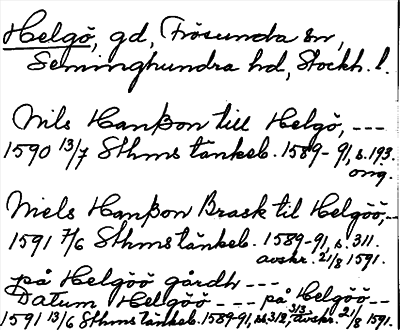 Helgö, gd, Frösunda sn,
Seminghundra hd, Stockh. l.
Nils Hanßon till Helgö, ---
1590 13/7 Sthms tänkeb. 1589-91, s. 193.
orig.
Niels Hanßon Brask til Helgöö,--
1591 7/6 Sthms tänkeb. 1589-91, s. 311.
avskr. 21/8 1591.
på Helgöö gårdh ---
Datum Helgöö --- på Helgöö --
1591 13/6 Sthms tänkeb. 1589-91, s. 312, avskr. 21/8 1591.